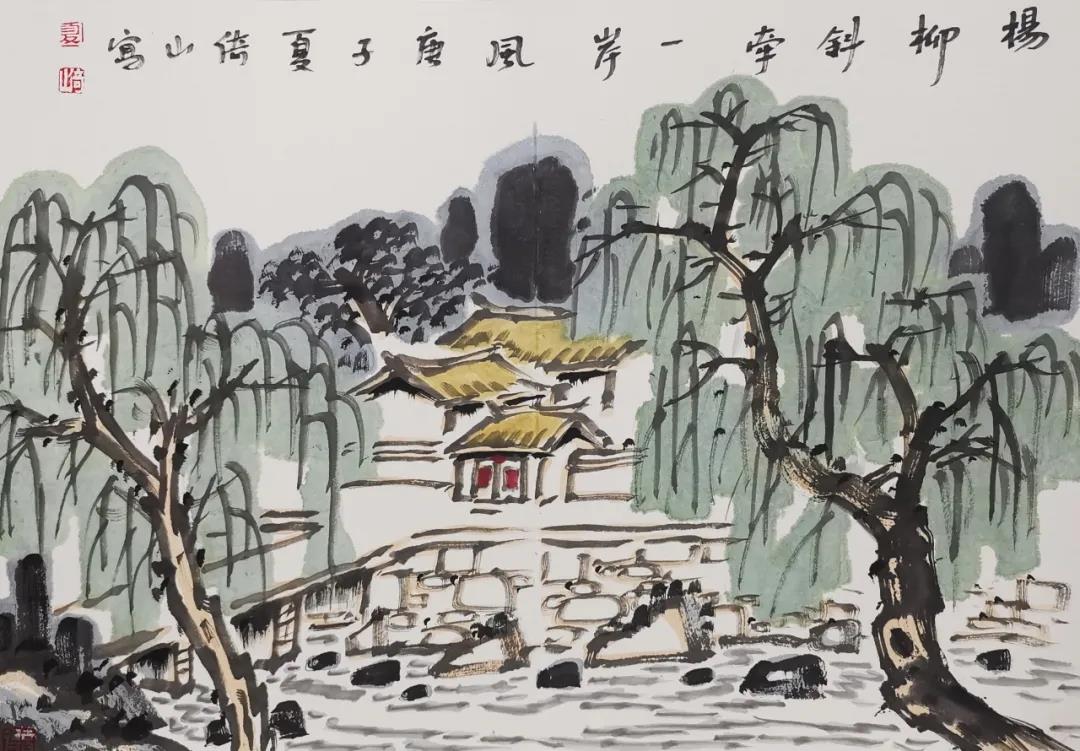 楊柳斜牽一岸風庚子夏倚山寫